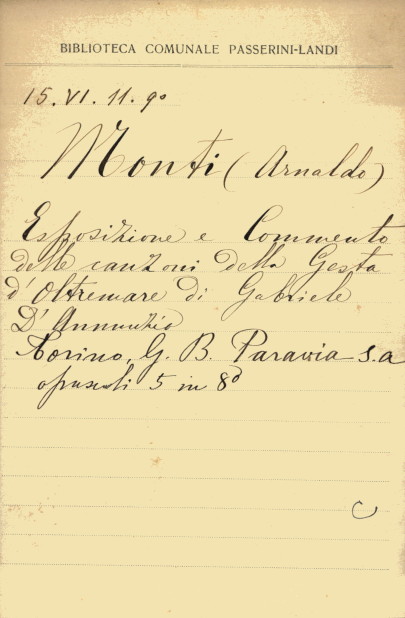 BIBLIOTECA COMUNALE PASSERINI-LANDI
15. VI. 11. 9°
Monti (Arnaldo)
Esposizione e Commento
delle canzoni della Gesta
d'Oltremare di Gabriele
D'Annunzio
Torino, G. B. Paravia s.a
opuscoli 5 in 8°
C